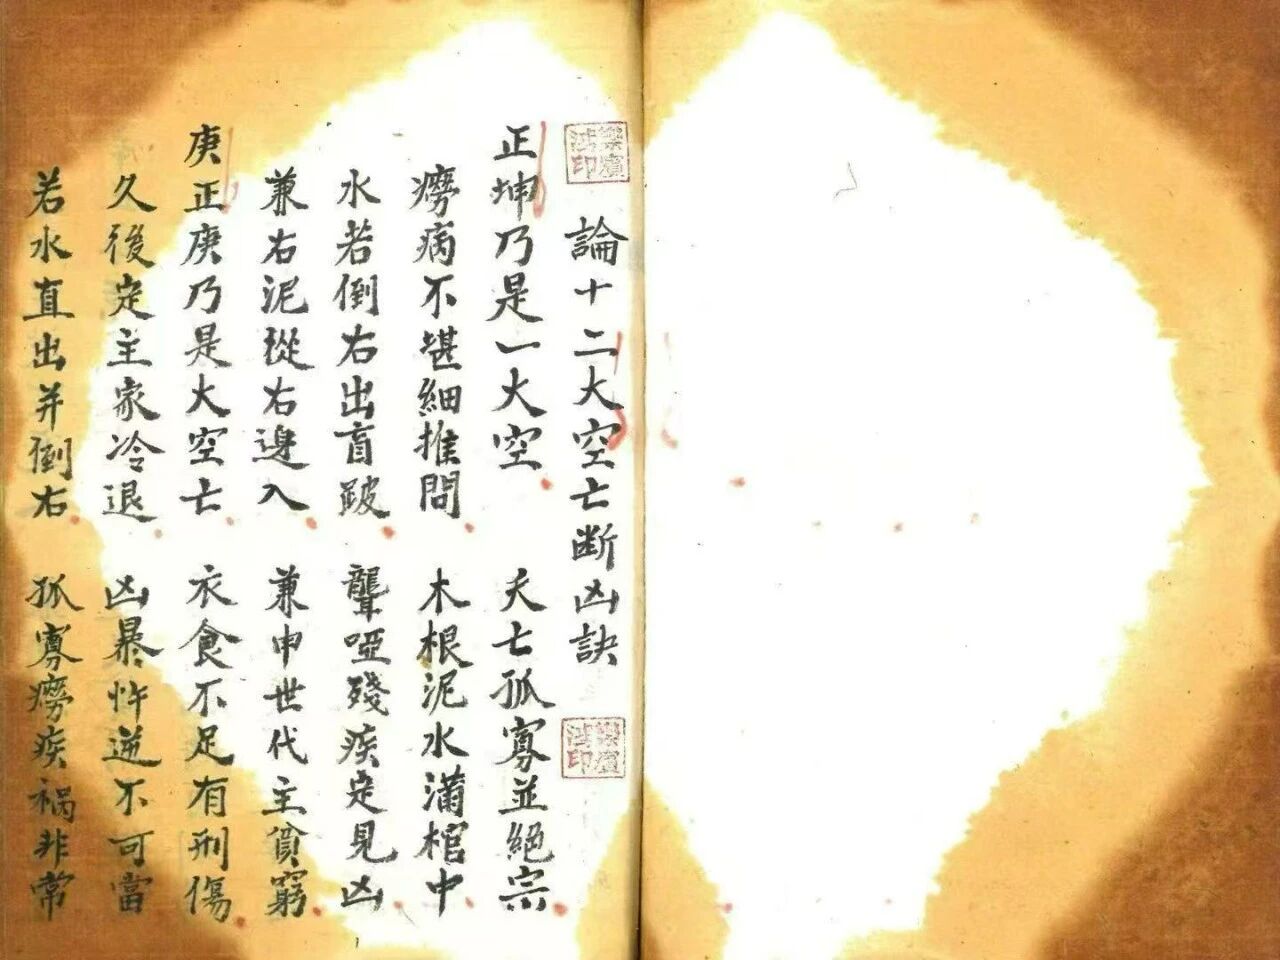 論十二大空亡断凶訣
正坤乃是一大空 夭亡孤寡並絕宗
癆病不堪細推問 木根泥水滿棺中
水若倒右出盲跛 聾啞殘疾定見凶
兼右泥從右邊入 兼申世代主貧窮
庚正庚乃是大空亡 衣食不足有刑傷
久後定主家冷退 凶暴忤逆不可當
若水直出并倒右 孤寡癆疾禍非常